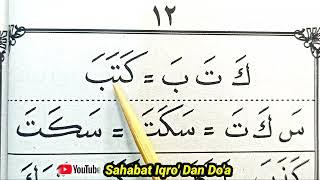 ١٢
كَ تَ بَ = كَتَبَ
سَ كَ تَ = سَكَتَ = سَكَتَ
YouTube Sahabat Iqro' Dan Do'a